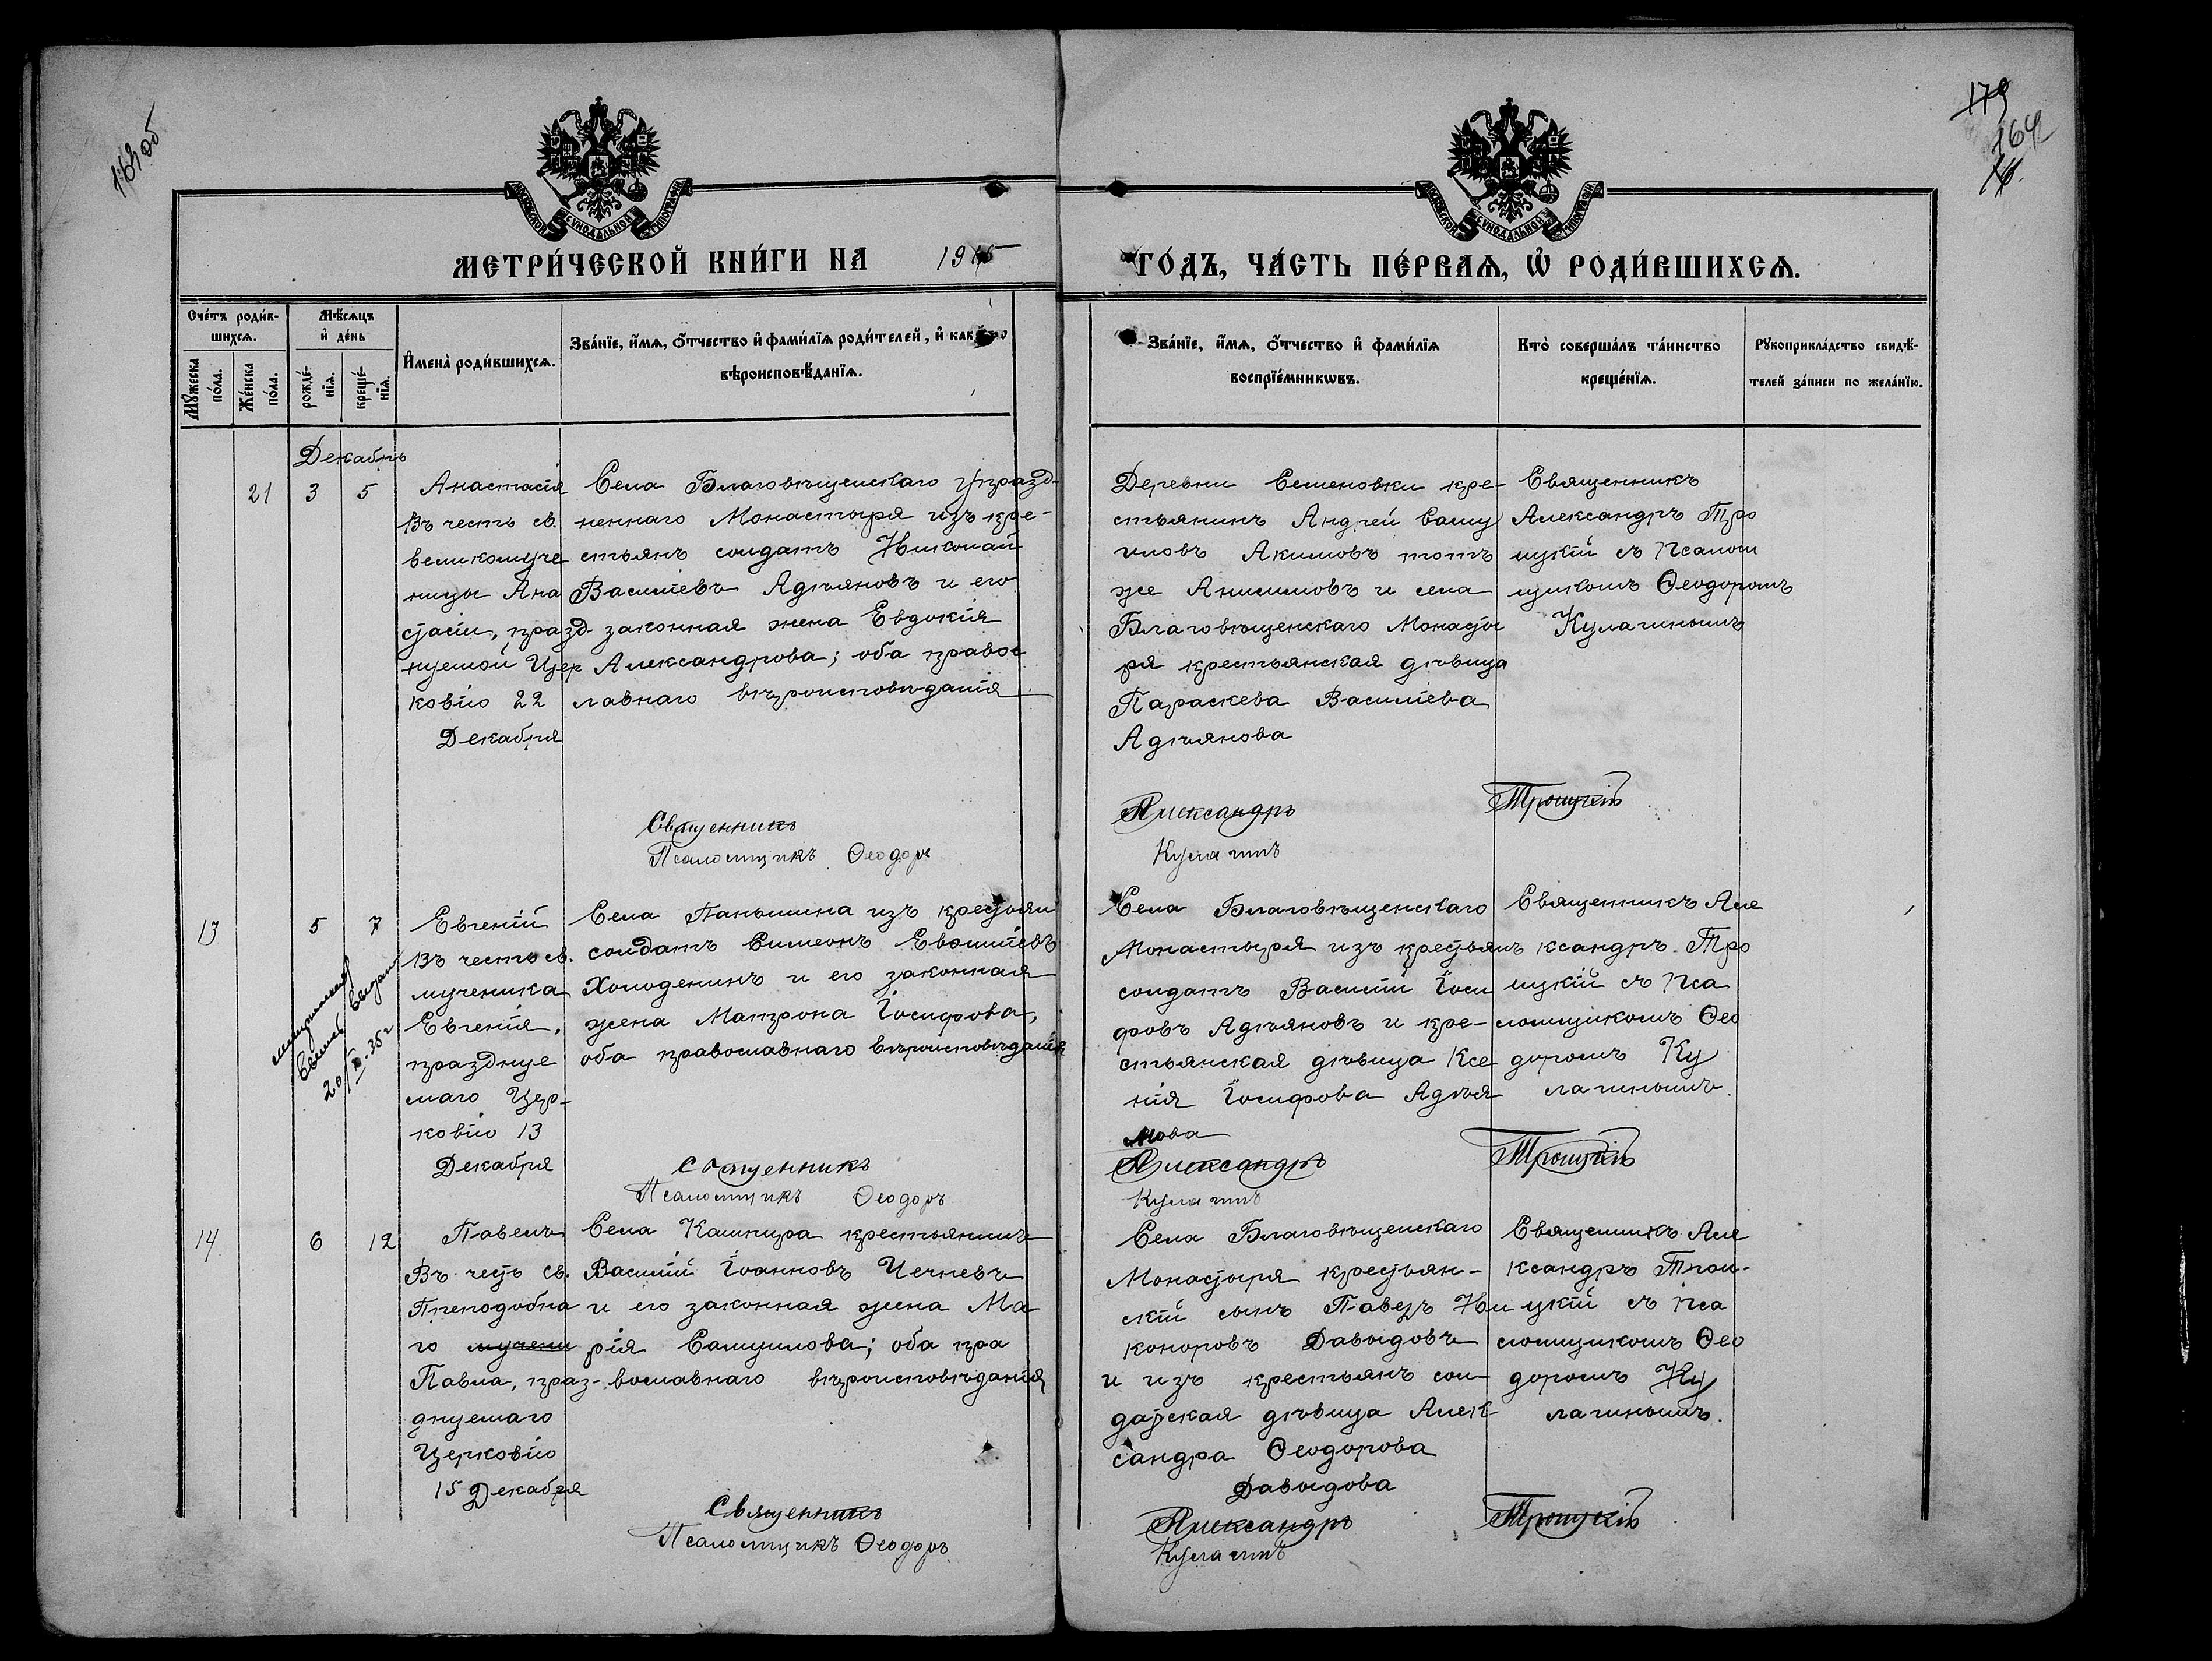 163об
179
164
МОСКОВСКОЙ СУНОДАЛЬНОЙ ТИПОГРАФІИ
МОСКОВСКОЙ СУНОДАЛЬНОЙ ТИПОГРАФІИ
МЕТРИ́ЧЕСКОЙ КНИ́ГИ НА 1915
ГО́ДЪ, ЧА́СТЬ ПЕ́РВАѦ, Ѡ҆ РОДИ́ВШИХСѦ.
Сче́тъ роди́в-
шихсѧ.
Мѣ́сѧцъ
и҆ де́нь
Мꙋ́жеска
по́ла.
Же́нска
по́ла.
рожде́-
нїѧ.
креще́-
нїѧ.
И҆мена̀ роди́вшихсѧ.
Зва́нїе, и҆́мѧ, ѻ҆́тчество и҆ фами́лїѧ роди́телей, и҆ како́гѡ
вѣроисповѣ́данїѧ.
Зва́нїе, и҆́мѧ, ѻ҆́тчество и҆ фами́лїѧ
воспрїе́мникѡвъ.
Кто̀ соверша́лъ та́инство
креще́нїѧ.
Рꙋкоприкла́дство свидѣ́-
телей за́писи по жела́нїю.
Декабрь
21 3 5
Анастасія
Въ честь св.
великомуче
ницы Ана
стасіи, празд
нуемой Цер
ковію 22
Декабря
Села Благовѣщенскаго упразд-
неннаго Монастыря изъ кре-
стьянъ солдатъ Николай
Василіевъ Адѣяновъ и его
законная жена Евдокія
Александрова; оба правос
лавнаго вѣроисповѣданія
Деревни Семеновки кре-
стьянинъ Андрей Саму
иловъ Акимовъ тотъ
же Анисимовъ и села
Благовѣщенскаго Монасты
ря крестьянская дѣвица
Параскева Василіева
Адѣянова
Священникъ
Александръ Тро
ицкій съ Псалом
щикомъ Ѳеодоромъ
Кулагинымъ
Священникъ Александръ Троицкій
Псаломщикъ Ѳеодоръ Кулагинъ
13 5 7
выдан
20/X.35г
Евгеній
Въ честь св.
мученика
Евгенія,
праздруе
маго Цер-
ковію 13
Декабря
Села Паньшина изъ крестьян
солдатъ Симеонъ Евѳиміевъ
Холоденинъ и его законная
жена Матрона Іосифова,
оба православнаго вѣроисповѣданія
Села Благовѣщенскаго
Монастыря изъ крестьянъ
солдатъ Василій Іоси
фовъ Адѣяновъ и кре-
стьянская дѣвица Ксе
нія Іосифова Адѣя
нова
Священникъ Але
ксандръ Тро
ицкій съ Пса
ломщикомъ Ѳео
доромъ Ку
лагинымъ.
Священникъ Александръ Троицкій
Псаломщикъ Ѳеодоръ Кулагинъ
14 6 12
Павелъ
Въ честь св.
Преподобна
го мучени
Павла, праз-
днуемаго
Церковію
15 Декабря
Села Кашпира крестьянинъ
Василій Іоанновъ Чечневъ
и его законная жена Ма
рія Самуилова; оба пра
вославнаго вѣроисповѣданія
Села Благовѣщенскаго
Монастыря крестьян-
скій сынъ Павелъ Ни
коноровъ Давыдовъ
и изъ крестьянъ сол-
датская дѣвица Алек-
сандра Ѳеодорова
Давыдова
Священникъ Але
ксандръ Трои-
цкій съ Пса
ломщикомъ Ѳео
доромъ Ку
лагинымъ.
Священникъ Александръ Троицкій
Псаломщикъ Ѳеодоръ Кулагинъ